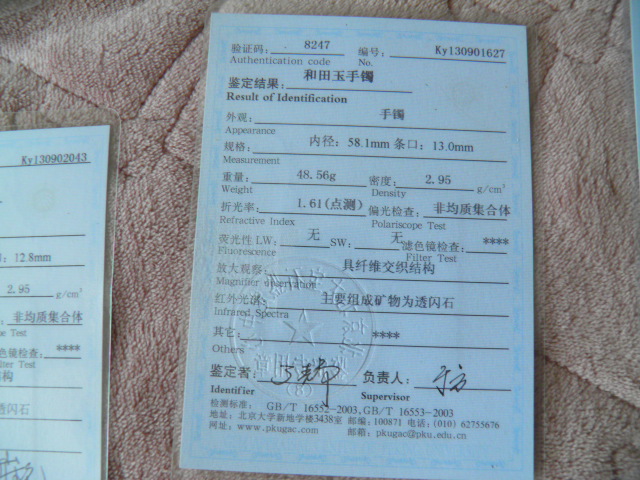 验证码: 8247 编号: Ky130901627
Authentication code No.
鉴定结果: 和田玉手镯
Result of Identification
外观: 手镯
Appearance
规格: 内径: 58.1mm 条口: 13.0mm
Measurement
重量: 48.56g 密度: 2.95 g/cm³
Weight Density
折光率: 1.61(点测) 偏光检查: 非均质集合体
Refractive Index Polariscope Test
荧光性 LW: 无 SW: 无 滤色镜检查: ****
Fluorescence Filter Test
放大观察: 具纤维交织结构
Magnifier observation
红外光谱: 主要组成矿物为透闪石
Infrared Spectra
其它: ****
Others
鉴定者: 负责人:
Identifier Supervisor
检测标准: GB/T 16552-2003,GB/T 16553-2003
地址: 北京大学新地学楼3438室 邮编: 100871 电话: (010) 62755676
网址: www.pkugac.com 邮箱: pkugac@pku.edu.cn
Ky130902043
: 12.8mm
2.95 g/cm³
: 非均质集合体
Test
色镜检查: ****
Filter Test
结构
透闪石